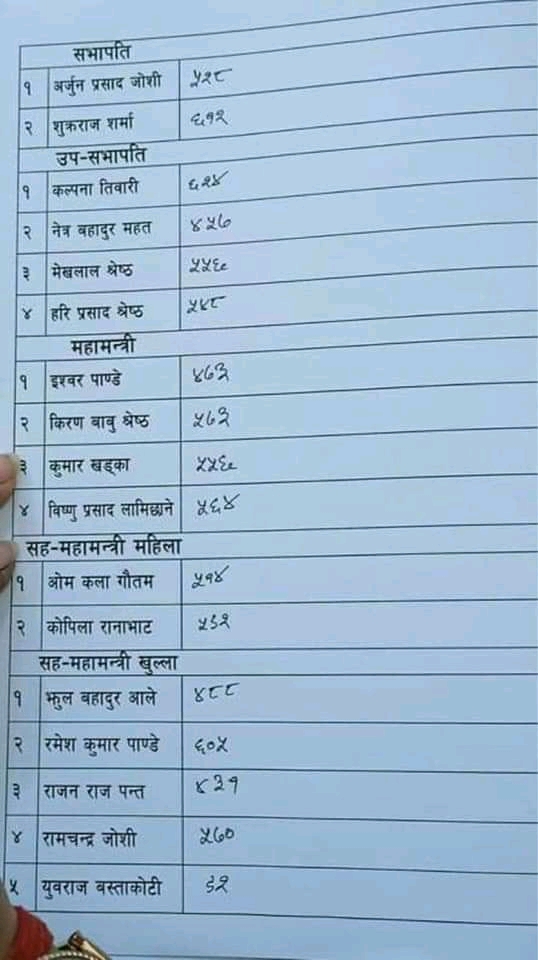 सभापति
१ अर्जुन प्रसाद जोशी ५२८
२ शुक्रराज शर्मा ६१२
उप-सभापति
१ कल्पना तिवारी ६२४
२ नेत्र बहादुर महत ४५७
३ मेखलाल श्रेष्ठ ५५६
४ हरि प्रसाद श्रेष्ठ ५४८
महामन्त्री
१ इश्वर पाण्डे ४७३
२ किरण बाबु श्रेष्ठ ५७३
३ कुमार खड्का ५५६
४ विष्णु प्रसाद लामिछाने ५६४
सह-महामन्त्री महिला
१ ओम कला गौतम ५१४
२ कोपिला रानाभाट
सह-महामन्त्री खुल्ला
१ झुल बहादुर आले ४८८
२ रमेश कुमार पाण्डे ६०५
३ राजन राज पन्त ४३१
४ रामचन्द्र जोशी ५७०
५ युवराज बस्ताकोटी